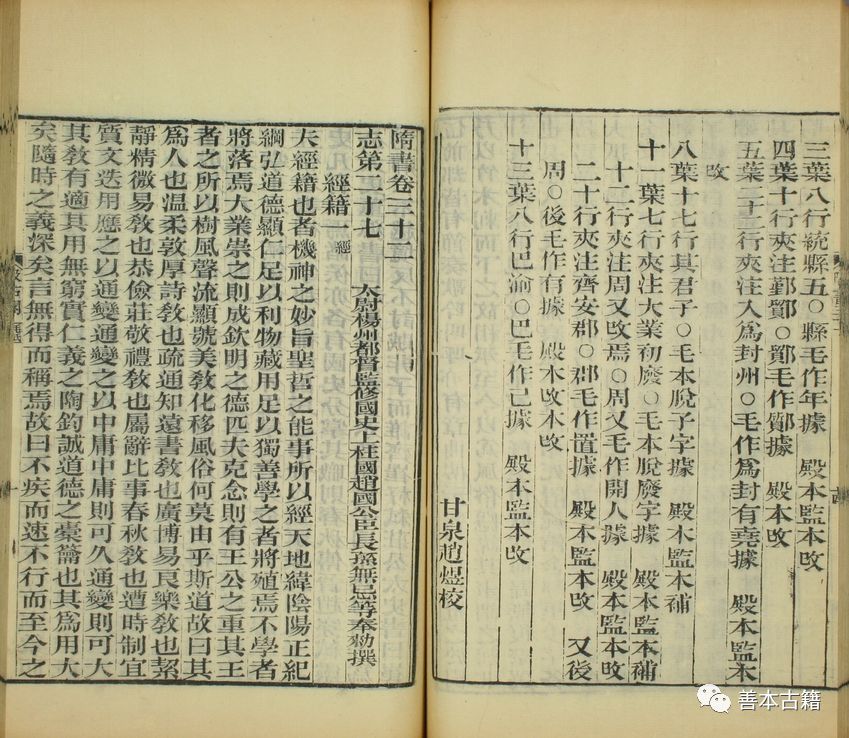 三葉八行統縣五○縣毛作年據　殿本監本改
四葉十行夾注鄞鄮○鄮毛作鄮據　殿本改
五葉二十二行夾注入爲封州○毛作爲封有堯據　殿本監本
改
八葉十七行其君子○毛本脫子字據　殿本監本補
十一葉七行夾注大業初廢○毛本脫廢字據　殿本監本補
十二行夾注周又改焉○周又毛作開人據　殿本監本改
二十行夾注齊安郡○郡毛作置據　殿本監本改　又後
周○後毛作有據　殿本改
十三葉八行巴渝○巴毛作已據　殿本監本改
甘泉趙煜校
隋書卷三十二
志第二十七　太尉楊州都督監修國史上柱國趙國公臣長孫無忌等奉勅撰
經籍一經
夫經籍也者機神之妙旨聖哲之能事所以經天地緯陰陽正紀
綱弘道德顯仁足以利物藏用足以獨善學之者將殖焉不學者
將落焉大業崇之則成欽明之德匹夫克念則有王公之重其王
者之所以樹風聲流顯號美教化移風俗何莫由乎斯道故曰其
爲人也溫柔敦厚詩教也疏通知遠書教也廣博易良樂教也絜
靜精微易教也恭儉莊敬禮教也屬辭比事春秋教也遭時制宜
質文迭用應之以通變通變之以中庸中庸則可久通變則可大
其教有適其用無窮實仁義之陶鈞誠道德之橐籥也其爲用大
矣隨時之義深矣言無得而稱焉故曰不疾而速不行而至今之
善本古籍